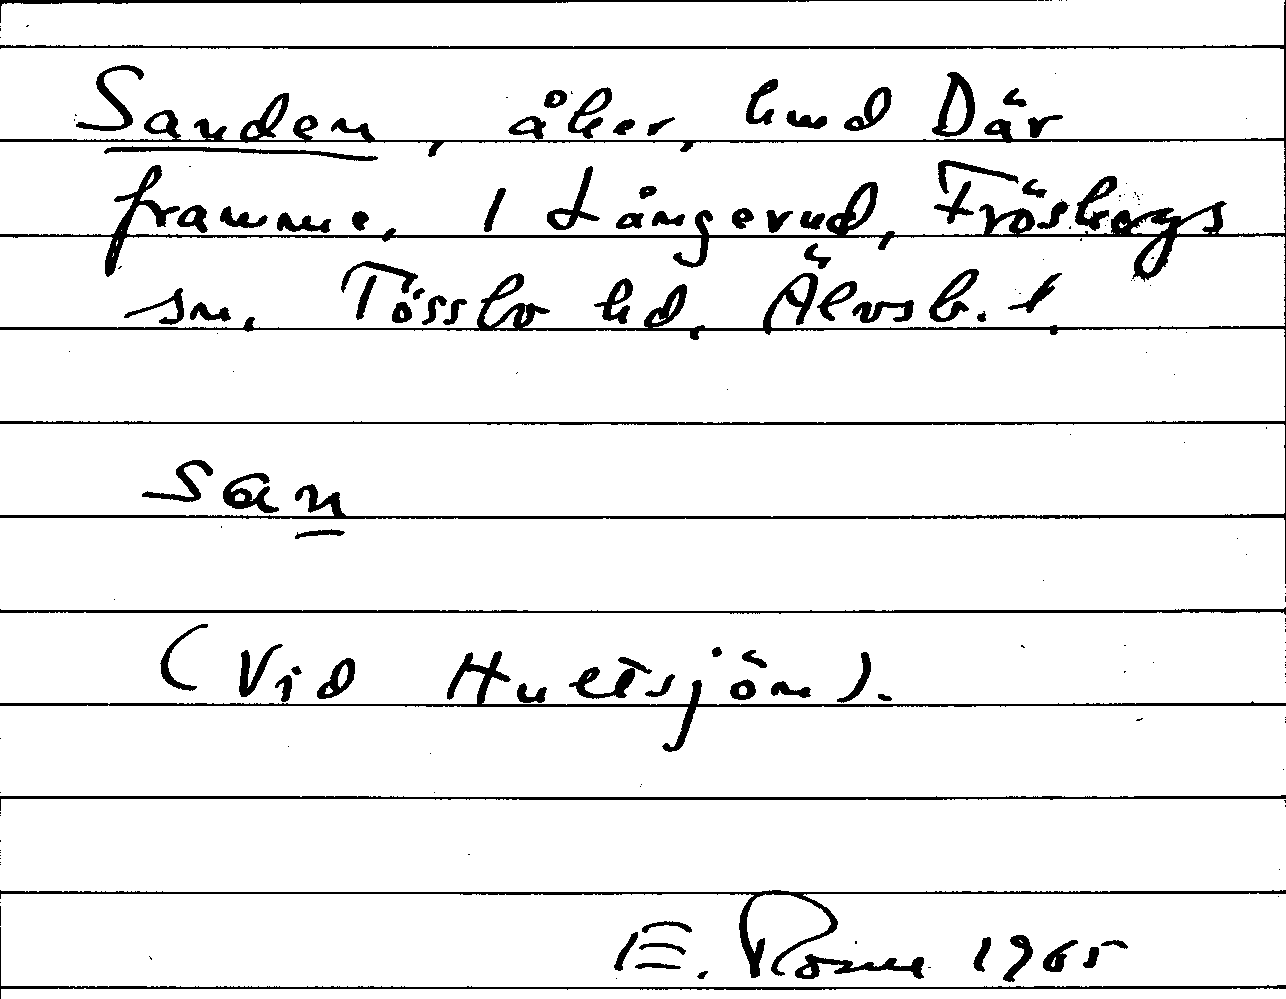 Sanden, åker, hmd Där
framme, 1 Långerud, Fröskogs
sn. Tössbo hd. Älvsb. l.
san
(Vid Hultsjön).
E. Rosne 1965